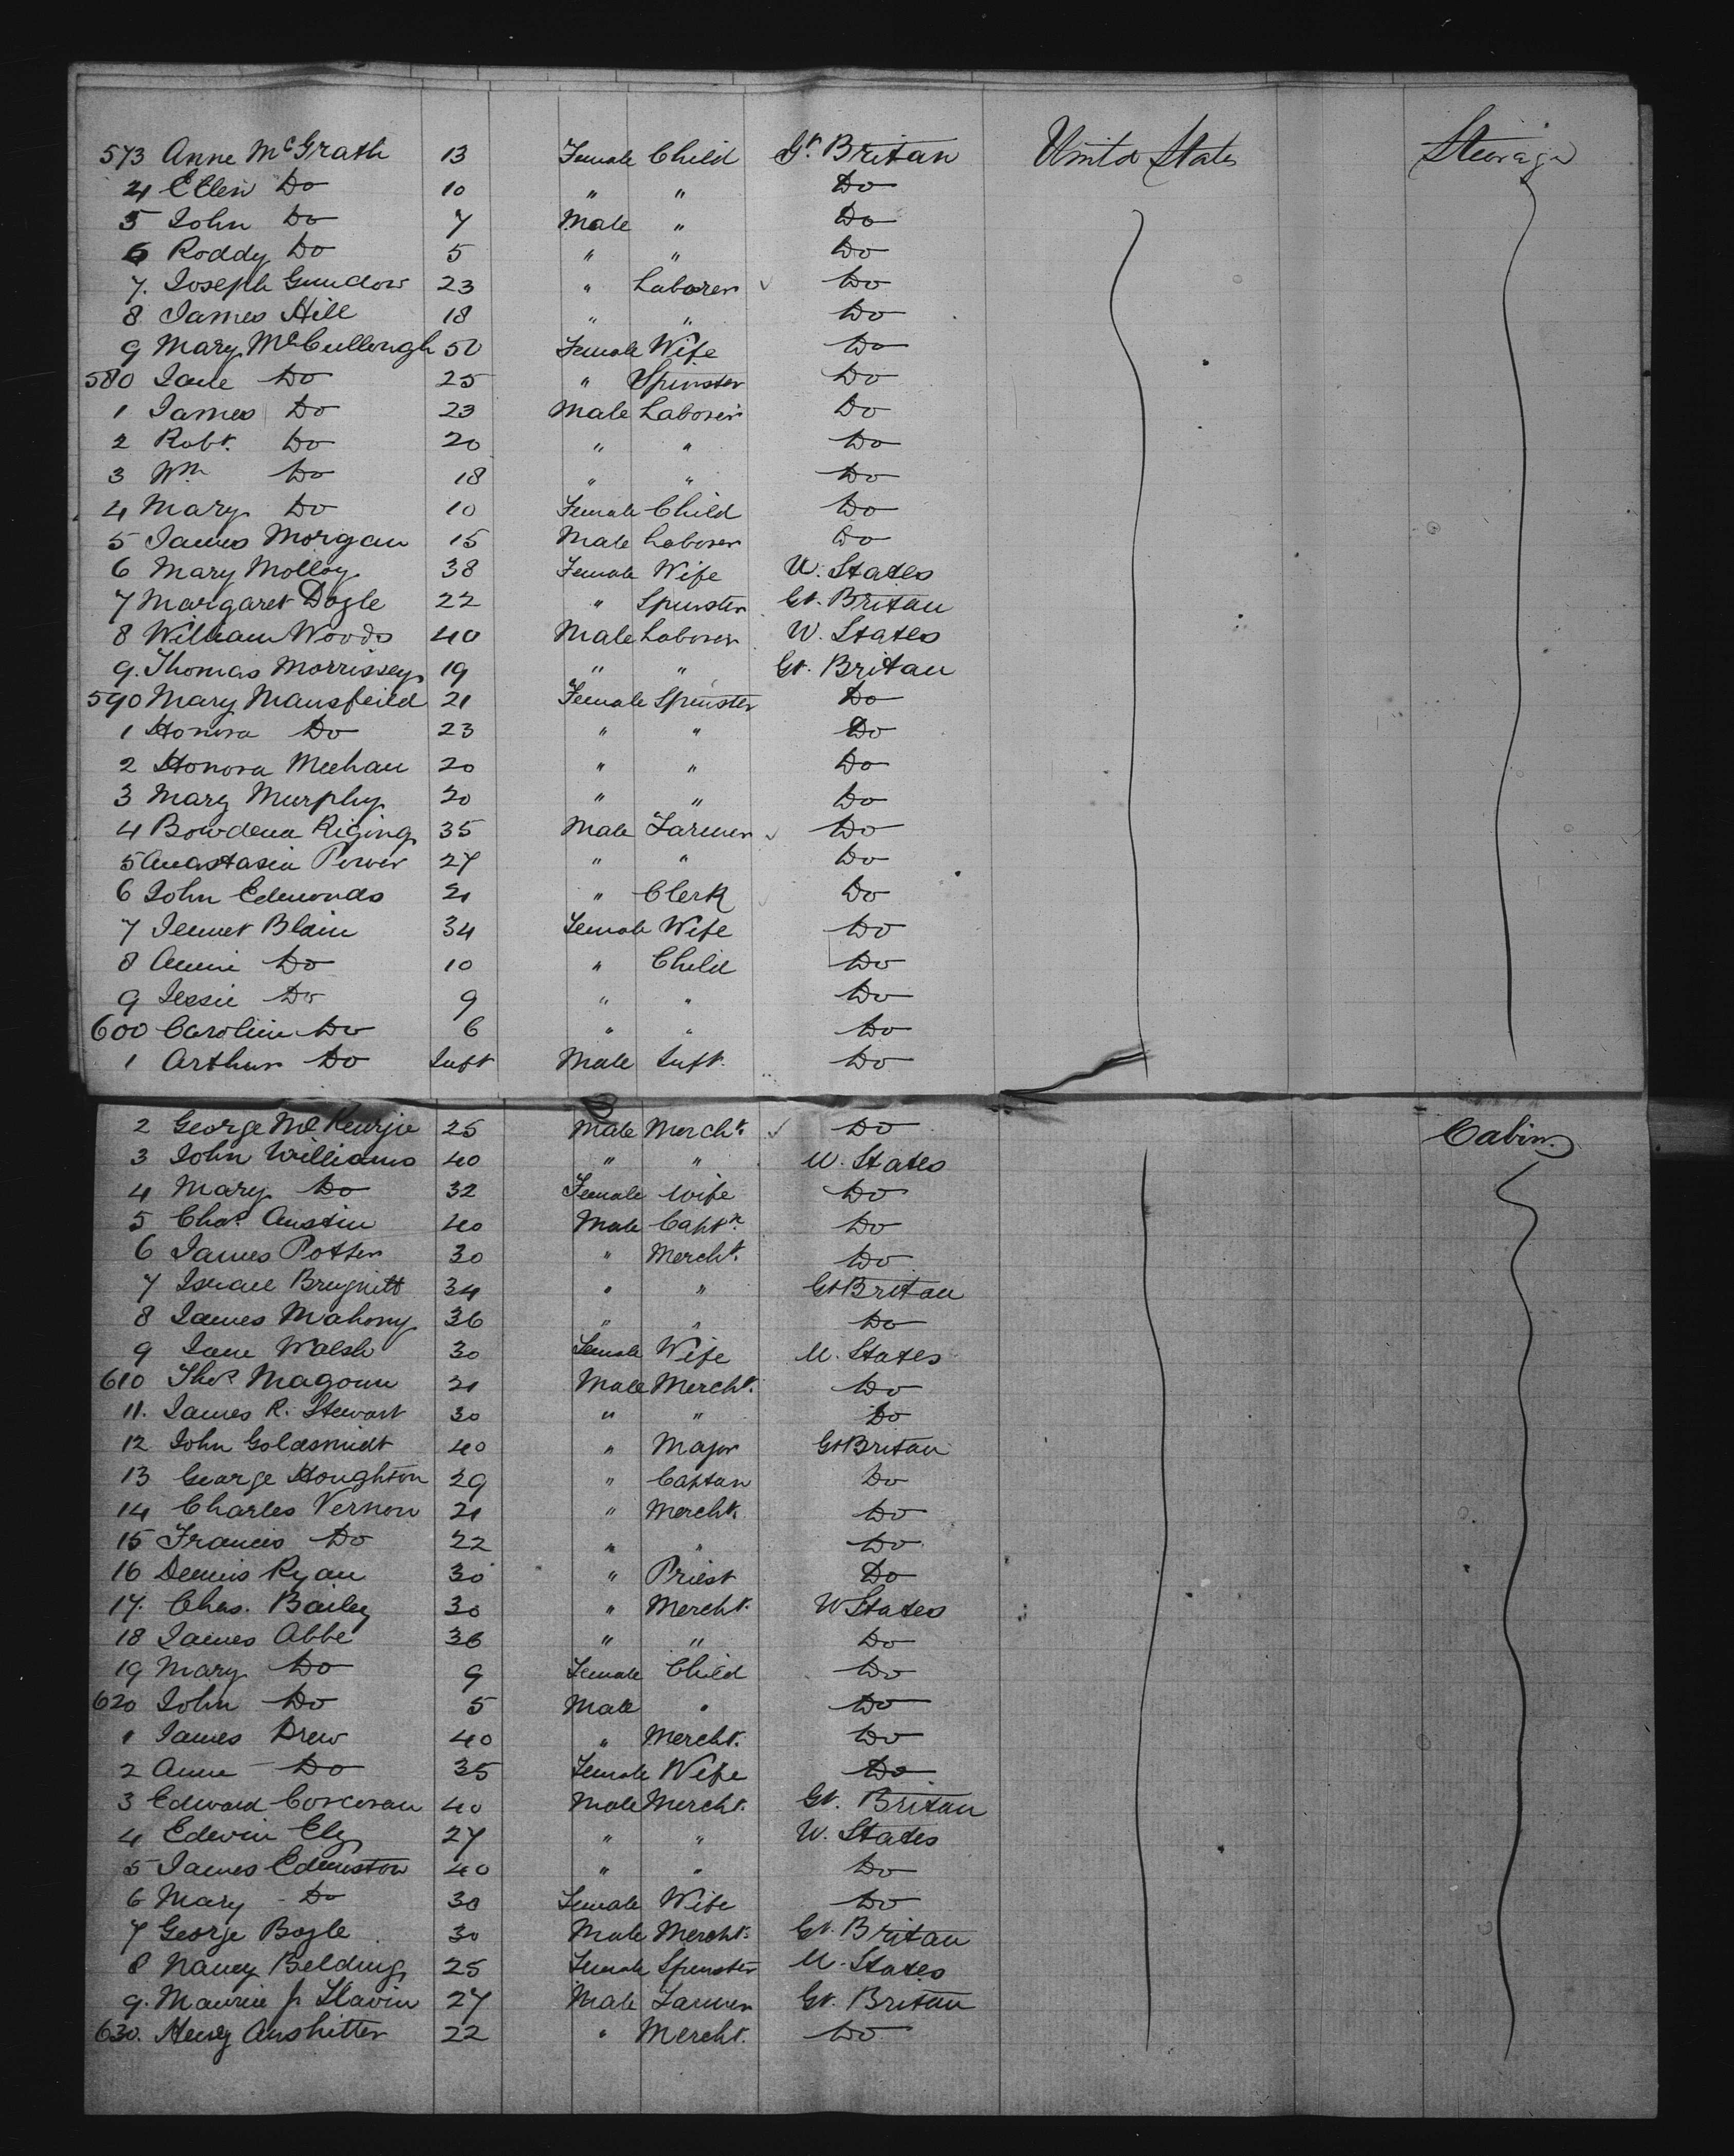 573 Anne McGrath 13 Female Child Gt. Britan United States Steerage
4 Ellen Do 10 " " Do
5 John Do 7 Male " Do
6 Roddy Do 5 " " Do
7. Joseph 23 " Laborer ✓ Do
8 James Hill 18 " " Do
9 Mary McCullough 50 Female Wife Do
580 Jane Do 25 " Spinster Do
1 James Do 23 Male Laborer Do
2 Robt. Do 20 " " Do
3 Wm Do 18 " " Do
4 Mary Do 10 Female Child Do
5 James Morgan 15 Male Laborer Do
6 Mary Molloy 38 Female Wife U. States
7 Margaret Dogle 22 " Spinster Gt. Britan
8 William Woods 40 Male Laborer U. States
9. Thomas Morrissey 19 " " Gt. Britan
590 Mary Mansfeild 21 Female Spinster Do
1 Honora Do 23 " " Do
2 Honora Meehan 20 " " Do
3 Mary Murphy 20 " " Do
4 Bowdena Riging 35 Male Farmer ✓ Do
5 Anastasia Power 27 " " Do
6 John Edmonds 21 " Clerk ✓ Do
7 Jennet Blain 34 Female Wife Do
8 Annie Do 10 " Child Do
9 Jessie Do 9 " " Do
600 Caroline Do 6 " " Do
1 Arthur Do Inft Male Inft. Do
2 George McKenzie 25 Male Mercht. ✓ Do Cabin
3 John Williams 40 " " U. States
4 Mary Do 32 Female Wife Do
5 Chas. Austin 40 Male Captn. Do
6 James Potter 30 " Mercht. Do
7 34 " " Gt Britan
8 James Mahony 36 " " Do
9 Jane Walsh 30 Female Wife U. States
610 Thos. Magoun 21 Male Mercht. Do
11. James R. Stewart 30 " " Do
12 John Goldsmidt 40 " Major Gt Britan
13 George Houghton 29 " Captan Do
14 Charles Vernon 21 " Mercht. Do
15 Francis Do 22 " " Do
16 Dennis Ryan 30 " Priest Do
17. Chas. Bailey 30 " Mercht. U States
18 James Abbe 36 " " Do
19 Mary Do 9 Female Child Do
620 John Do 5 Male " Do
1 James Drew 40 " Mercht. Do
2 Anne Do 35 Female Wife Do
3 Edward Corcoran 40 Male Mercht. Gt. Britan
4 Edwin Ely 27 " " U. States
5 James Edmiston 40 " " Do
6 Mary Do 30 Female Wife Do
7 George Bogle 30 Male Mercht. Gt. Britan
8 Nancy Belding 25 Female Spinster U. States
9. Maurice J. Slavin 27 Male Farmer Gt. Britan
630. Henry 22 " Mercht. Do